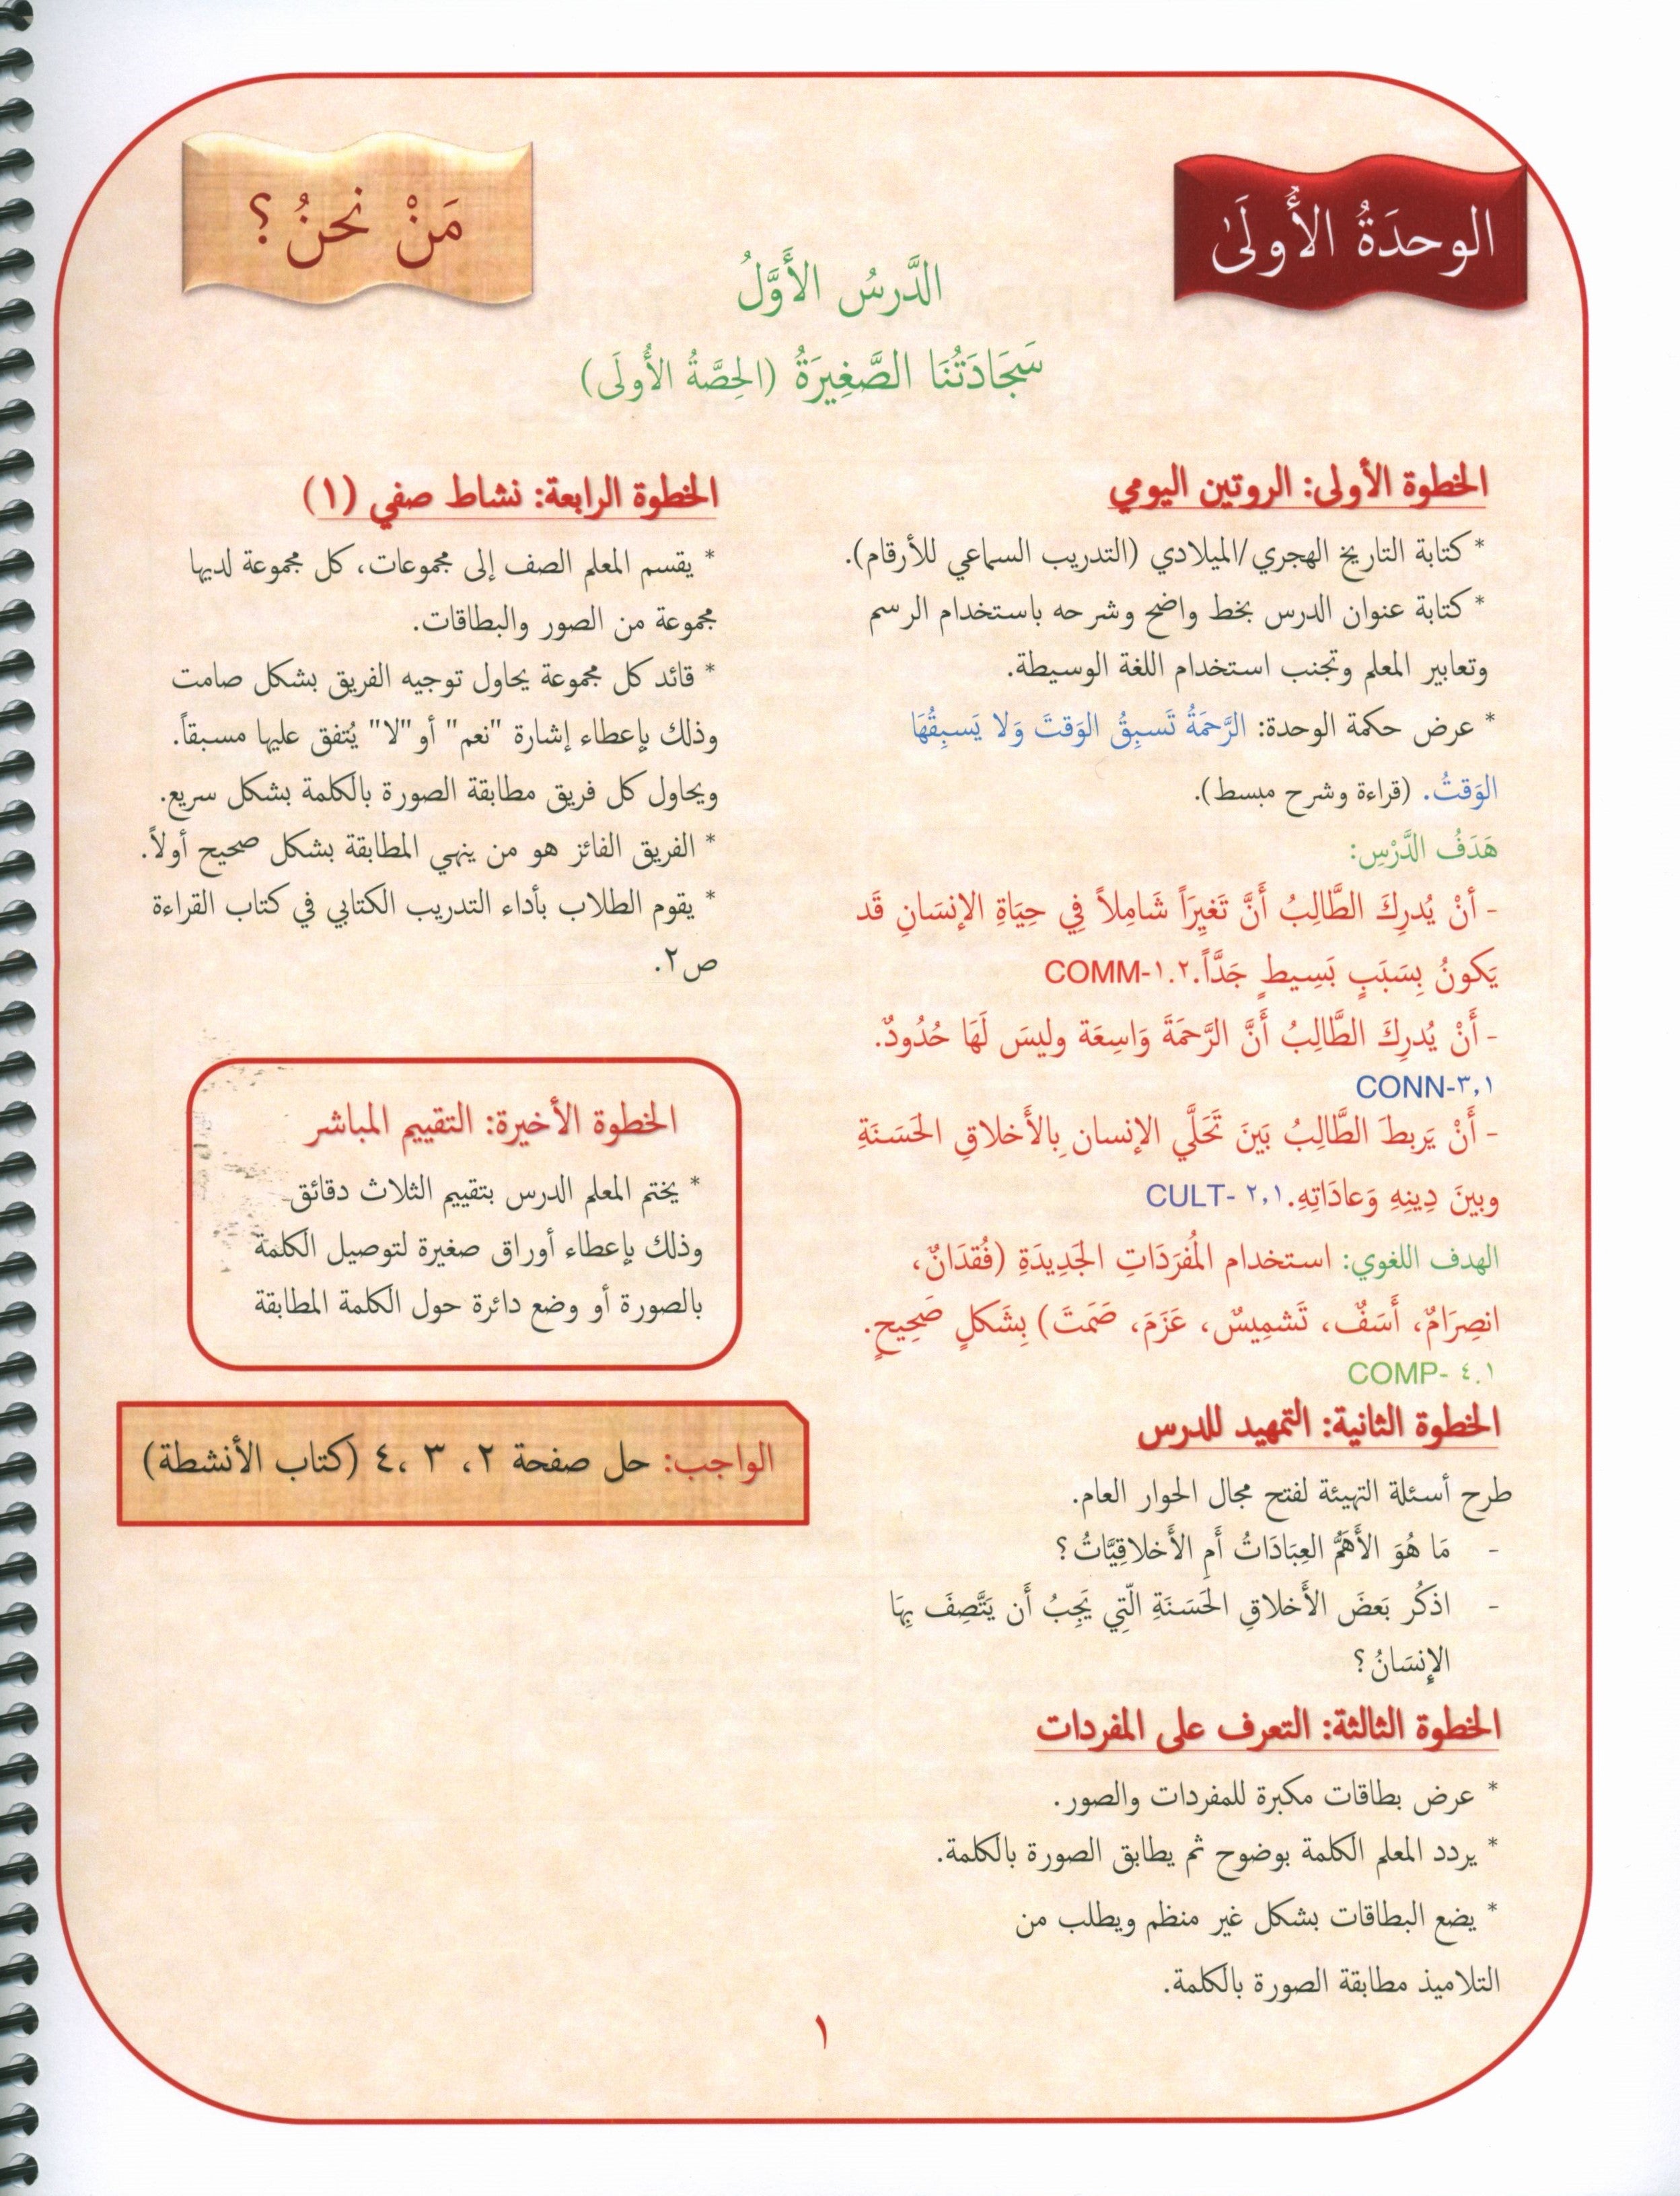 الوحدَةُ الأُولَىٰ
مَنْ نحنُ؟
الدَّرسُ الأَوَّلُ
سَجَادَتُنَا الصَّغِيرَةُ (الحِصَّةُ الأُولَى)
الخطوة الأولى: الروتين اليومي
* كتابة التاريخ الهجري/الميلادي (التدريب السماعي للأرقام).
* كتابة عنوان الدرس بخط واضح وشرحه باستخدام الرسم
وتعابير المعلم وتجنب استخدام اللغة الوسيطة.
* عرض حكمة الوحدة: الرَّحمَةُ تَسبِقُ الوَقتَ وَلا يَسبِقُهَا
الوَقتُ. (قراءة وشرح مبسط).
هَدَفُ الدَّرْسِ:
- أنْ يُدرِكَ الطَّالِبُ أَنَّ تَغيِرَاً شَامِلاً فِي حِيَاةِ الإنسَانِ قَد
يَكونُ بِسَبَبٍ بَسِيطٍ جَدَّاً.COMM-١.٢
- أَنْ يُدرِكَ الطَّالِبُ أَنَّ الرَّحمَةَ وَاسِعَة وليسَ لَهَا حُدُودٌ.
CONN-٣,١
- أَنْ يَربطَ الطَّالِبُ بَينَ تَحَلَّي الإنسان ِبالأَخلاقِ الحَسَنَةِ
وبينَ دِينِهِ وَعادَاتِهِ.CULT- ٢,١
الهدف اللغوي: استخدام المُفرَدَاتِ الجَدِيدَةِ (فُقدَانٌ،
انصِرَامٌ، أَسَفٌ، تَشمِيسٌ، عَزَمَ، صَمَتَ) بِشَكلٍ صَحِيحٍ.
COMP- ٤.١
الخطوة الثانية: التمهيد للدرس
طرح أسئلة التهيئة لفتح مجال الحوار العام.
- مَا هُوَ الأَهَمُّ العِبَادَاتُ أَمِ الأَخلاقِيَّاتُ؟
- اذكُر بَعضَ الأَخلاقِ الحَسَنَةِ الّتِي يَجِبُ أَن يَتَّصِفَ بِهَا
الإِنسَانُ؟
الخطوة الثالثة: التعرف على المفردات
* عرض بطاقات مكبرة للمفردات والصور.
* يردد المعلم الكلمة بوضوح ثم يطابق الصورة بالكلمة.
* يضع البطاقات بشكل غير منظم ويطلب من
التلاميذ مطابقة الصورة بالكلمة.
الخطوة الرابعة: نشاط صفي (١)
* يقسم المعلم الصف إلى مجموعات، كل مجموعة لديها
مجموعة من الصور والبطاقات.
* قائد كل مجموعة يحاول توجيه الفريق بشكل صامت
وذلك بإعطاء إشارة "نعم" أو "لا" يُتفق عليها مسبقاً.
ويحاول كل فريق مطابقة الصورة بالكلمة بشكل سريع.
* الفريق الفائز هو من ينهي المطابقة بشكل صحيح أولاً.
* يقوم الطلاب بأداء التدريب الكتابي في كتاب القراءة
ص٢.
الخطوة الأخيرة: التقييم المباشر
* يختم المعلم الدرس بتقييم الثلاث دقائق
وذلك بإعطاء أوراق صغيرة لتوصيل الكلمة
بالصورة أو وضع دائرة حول الكلمة المطابقة
الواجب: حل صفحة ٢، ٣ ،٤ (كتاب الأنشطة)
١